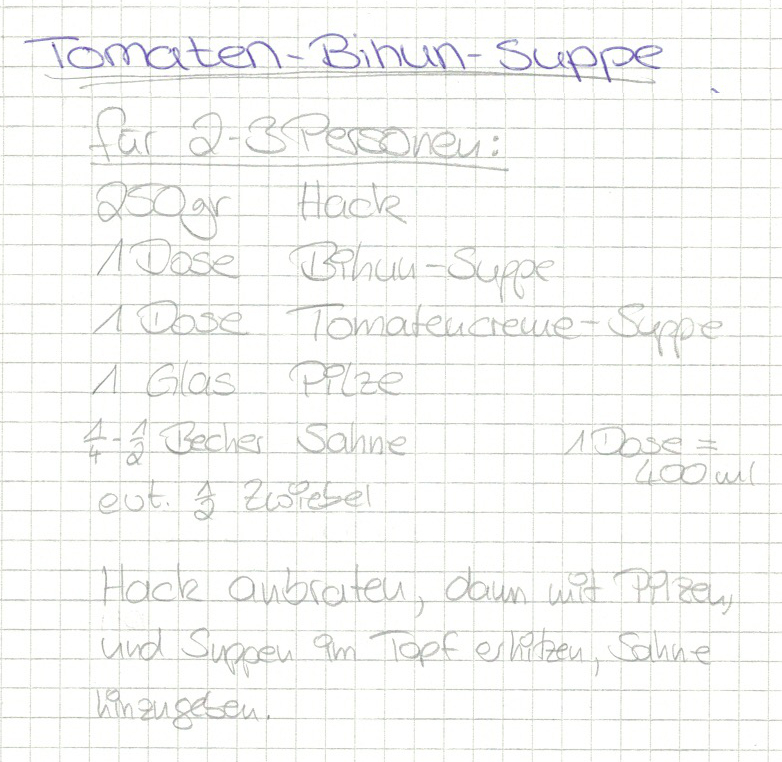 Tomaten-Bihun-Suppe
für 2-3 Personen:
250gr Hack
1 Dose Bihun-Suppe
1 Dose Tomatencreme-Suppe
1 Glas Pilze
1/4-1/2 Becher Sahne
1 Dose =
400 ml
evt. 1/2 Zwiebel
Hack anbraten, dann mit Pilzen,
und Suppen im Topf erhitzen, Sahne
hinzugeben.